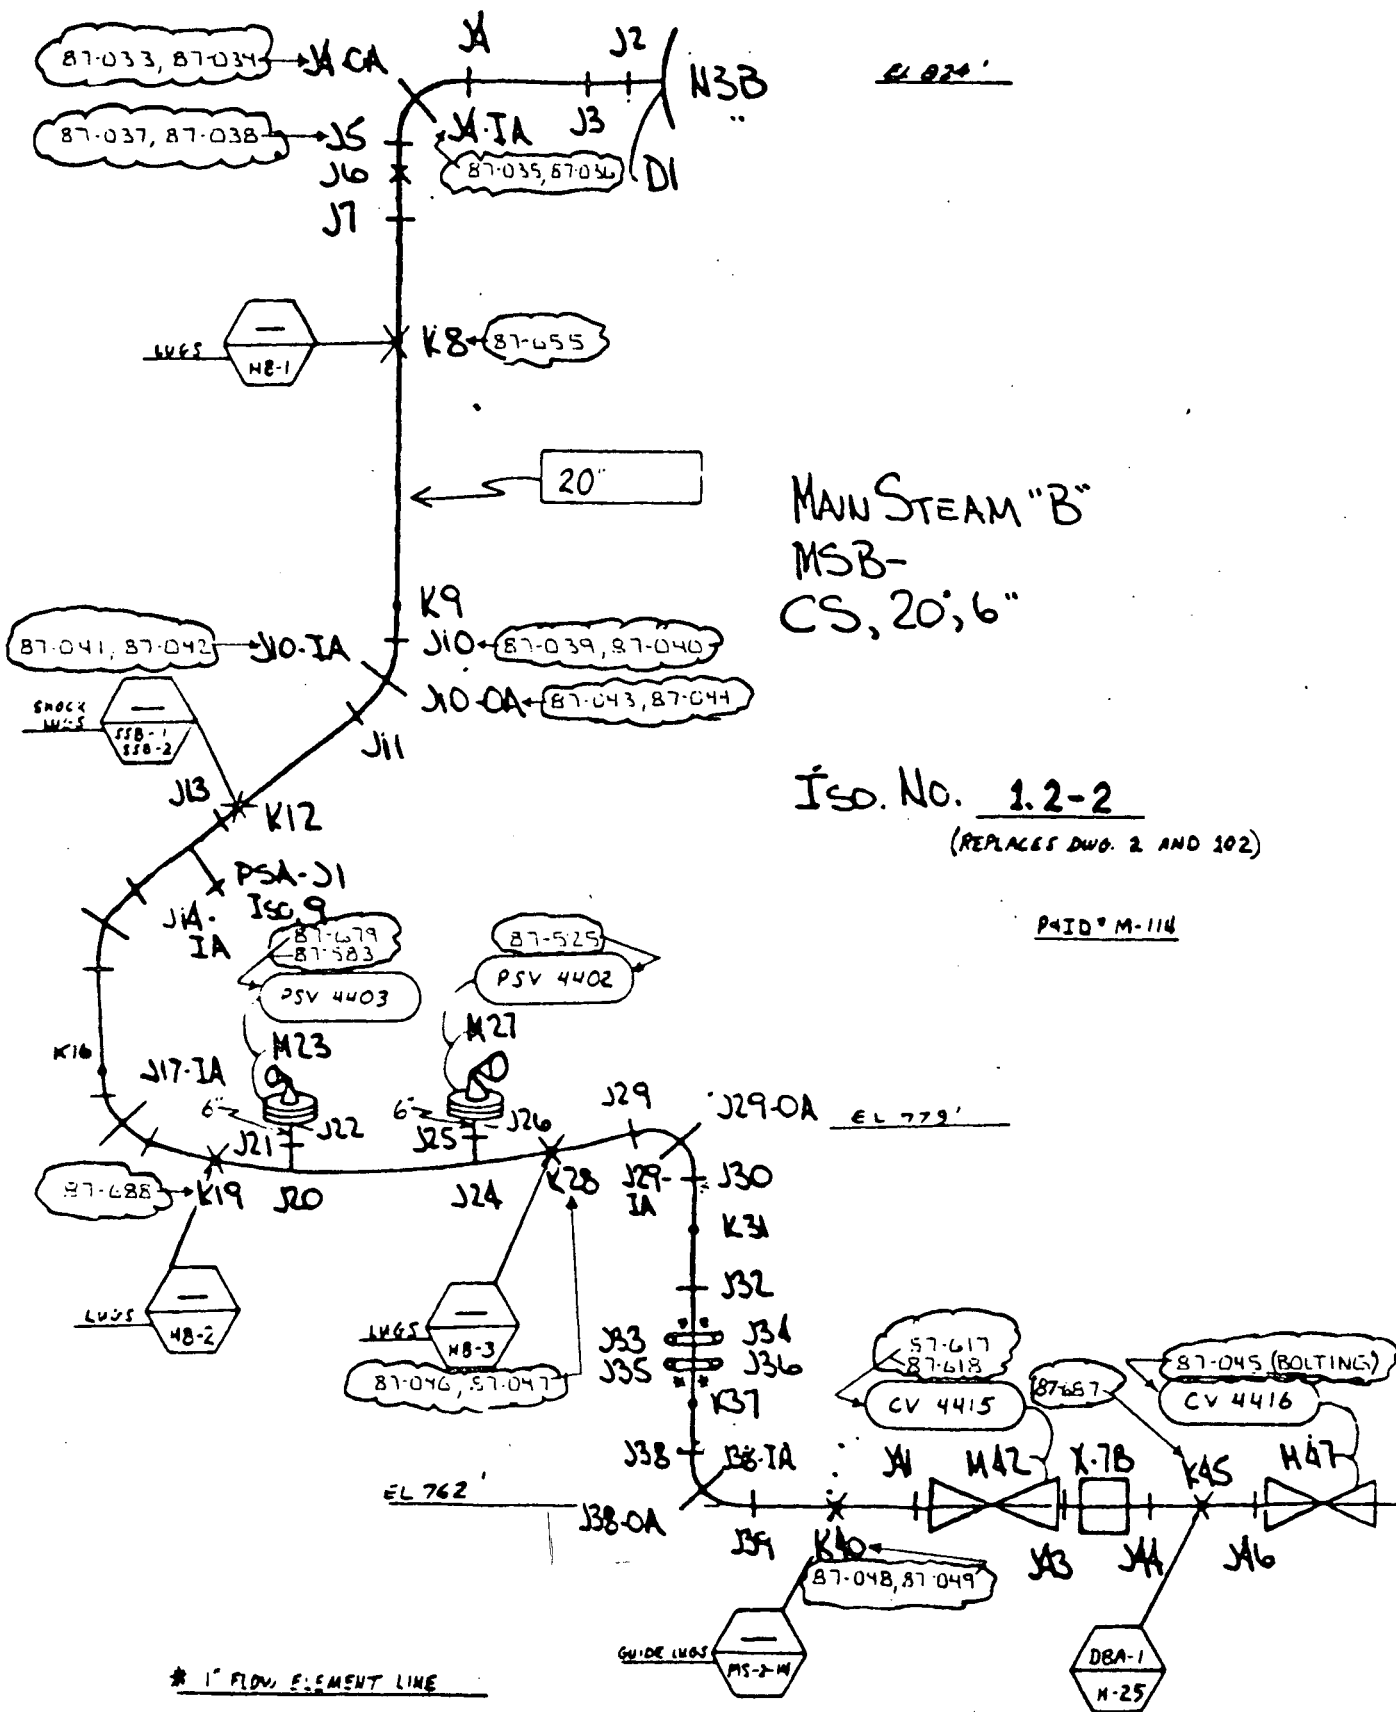 87-033, 87-034
J4-OA
J4
J2
N3B
EL 824'
87-037, 87-038
J5
J4-IA
J3
87-035, 87-036
D1
J6
J7
LUGS
HB-1
K8
87-655
20"
MAIN STEAM "B"
MSB-
CS, 20", 6"
K9
87-041, 87-042
J10-IA
J10
87-039, 87-040
J10-OA
87-043, 87-044
SHOCK
LUGS
SSB-1
SSB-2
J11
J13
K12
Iso. No. 1.2-2
(REPLACES DWG. 2 AND 102)
PSA-J1
Iso 9
J14-
IA
P&ID
87-679
87-583
PSV 4403
87-525
PSV 4402
K16
M23
M27
J17-IA
6"
J21
J22
6"
J25
J26
J29
J29-OA
EL 779'
87-688
K19
J20
J24
K28
J29-
IA
J30
K31
J32
LUGS
HB-2
LUGS
HB-3
J33
J34
J35
J36
87-046, 87-047
K37
87-617
87-618
CV 4415
87-687
87-045 (BOLTING)
CV 4416
J38
J38-IA
J41
M42
X-7B
K45
M47
EL 762'
J38-OA
J39
K40
J43
J44
J46
87-048, 87-049
GUIDE LUGS
DBA-1
H-25
* 1" FLOW ELEMENT LINE